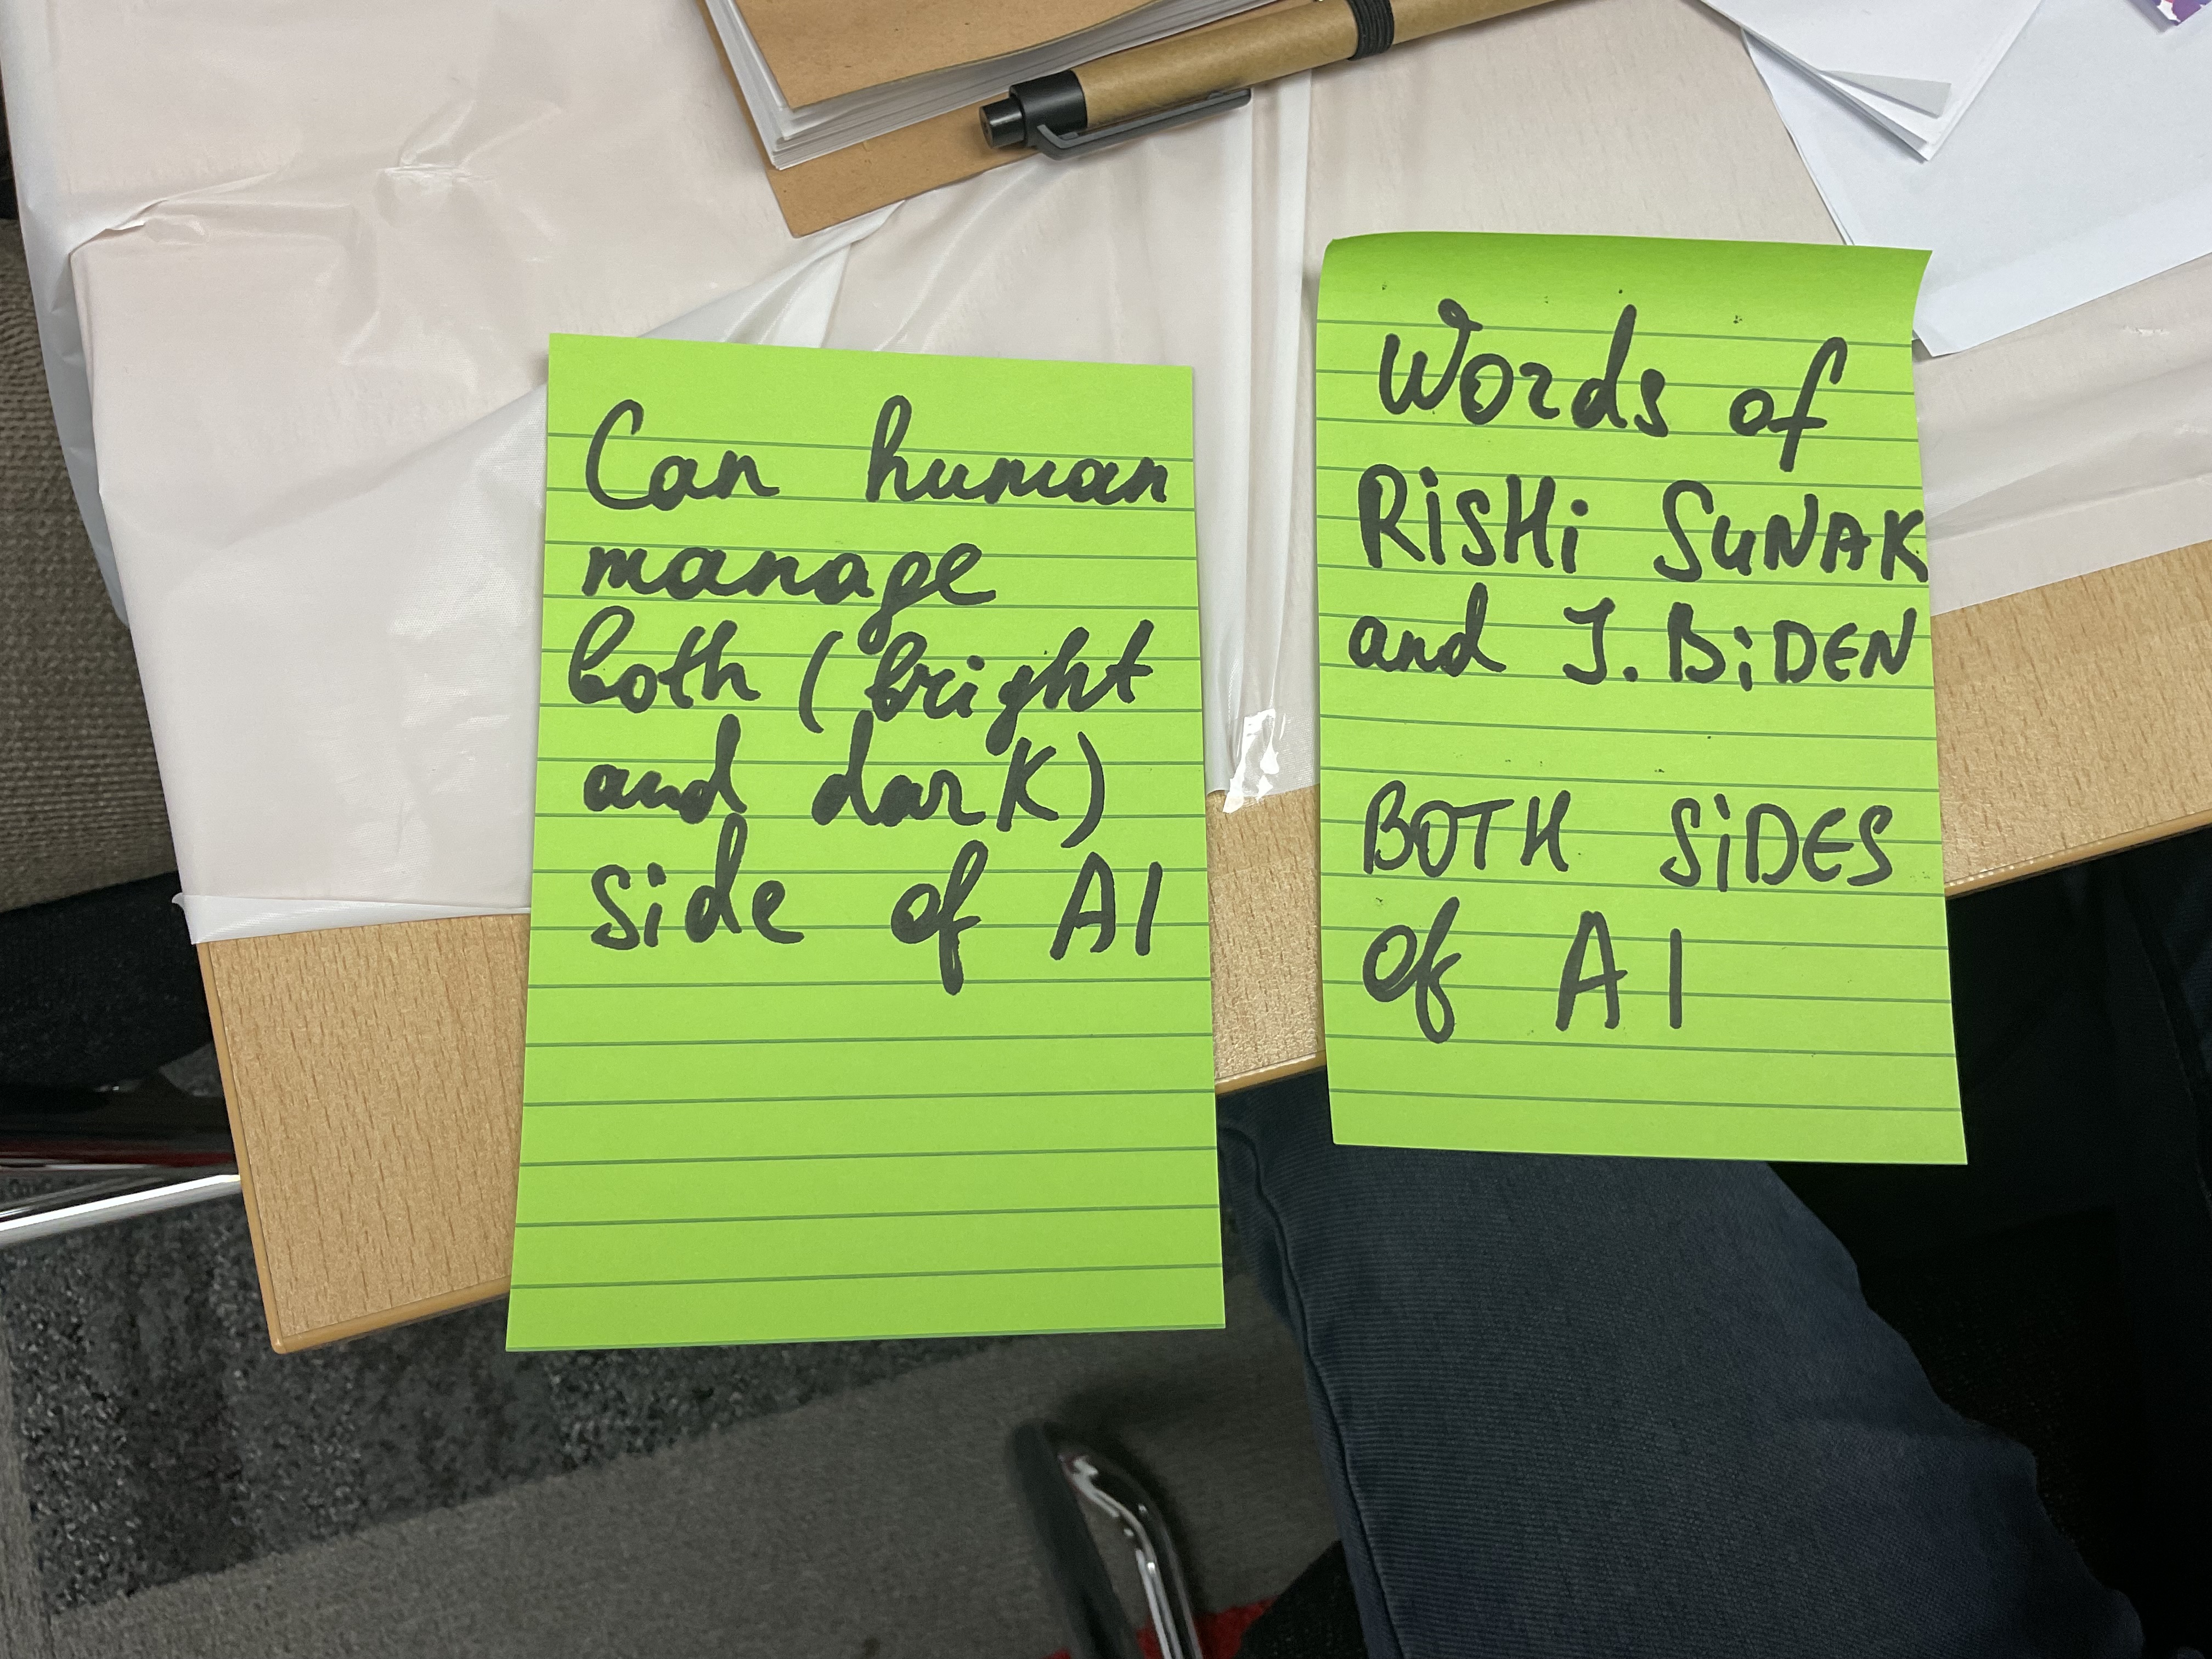 Can human
manage
both (bright
and dark)
side of AI
Words of
RiSHi SuNAK
and J. BiDEN
BOTH SiDES
of AI